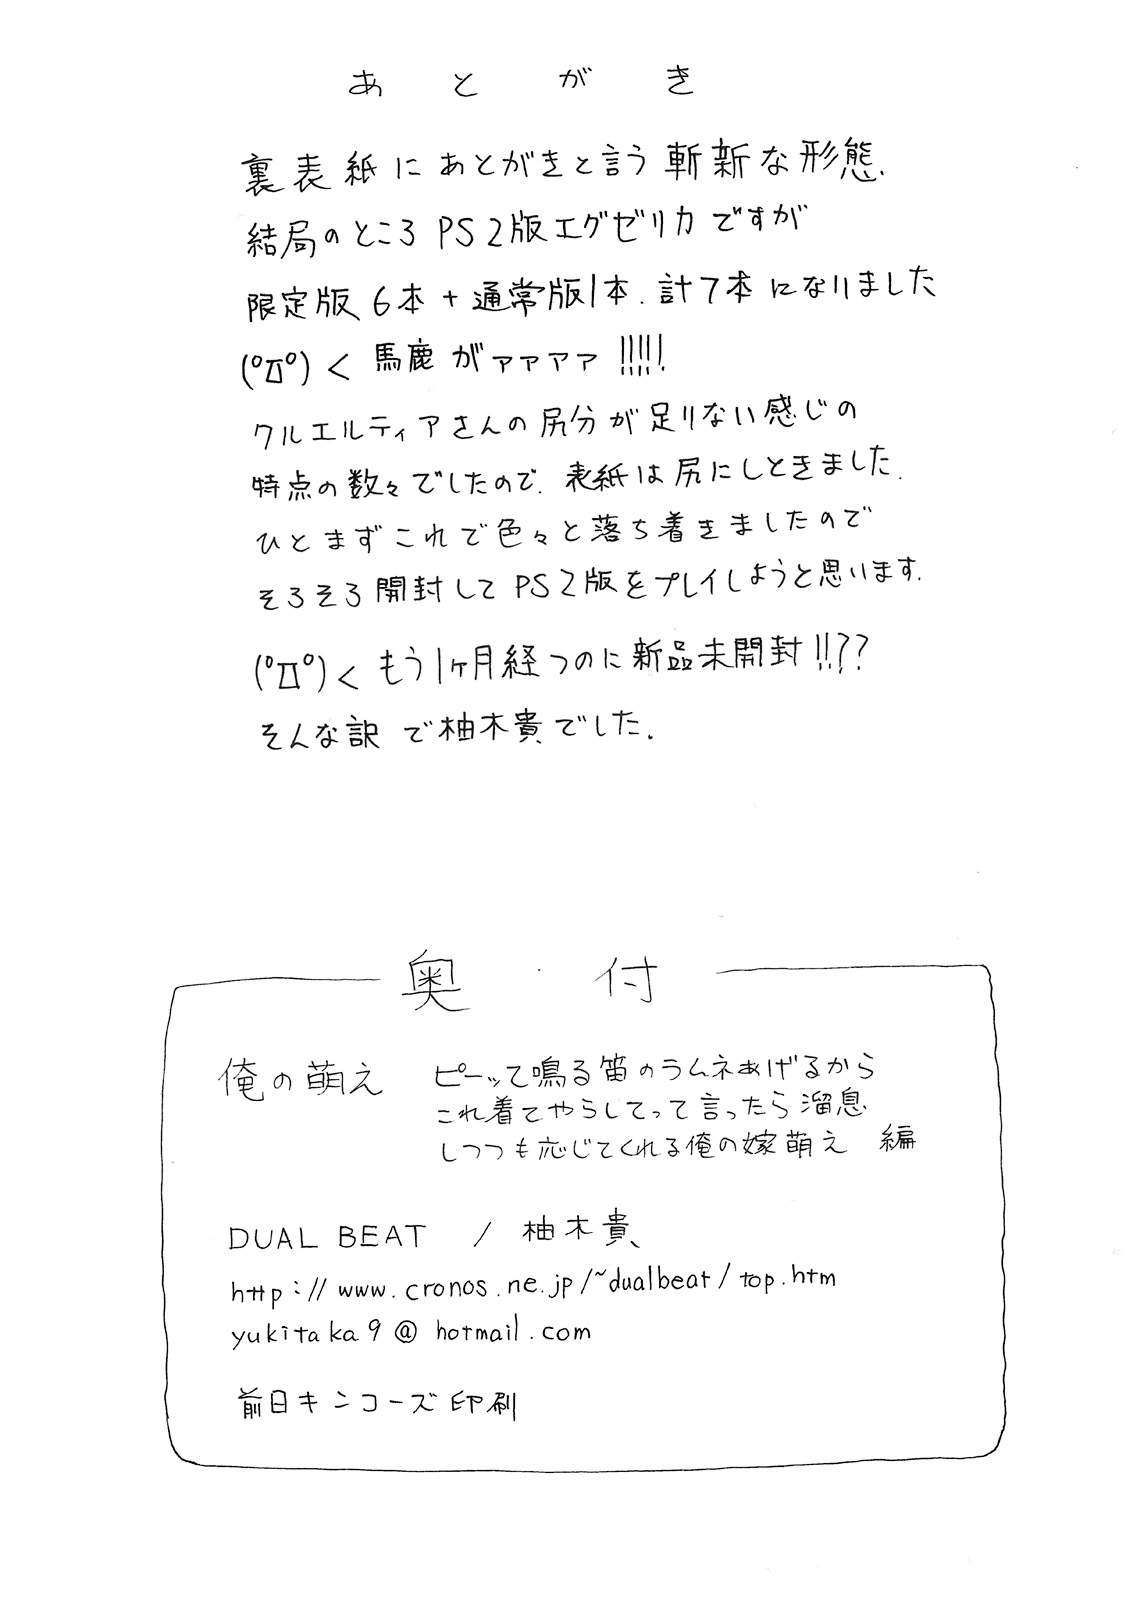 あとがき
裏表紙にあとがきと言う斬新な形態.
結局のところPS2版エグゼリカですが
限定版6本+通常版1本.計7本になりました
(ﾟДﾟ)< 馬鹿がァァァァ!!!!!
クルエルティアさんの尻分が足りない感じの
特点の数々でしたので.表紙は尻にしときました.
ひとまずこれで色々と落ち着きましたので
そろそろ開封してPS2版をプレイしようと思います.
(ﾟДﾟ)< もう1ヶ月経つのに新品未開封!!??
そんな訳で柚木貴でした.
奥付
俺の萌え ピーッて鳴る笛のラムネあげるから
これ着てやらしてって言ったら溜息
しつつも応じてくれる俺の嫁萌え 編
DUAL BEAT / 柚木貴
http://www.cronos.ne.jp/~dualbeat/top.htm
yukitaka9@hotmail.com
前日キンコーズ印刷